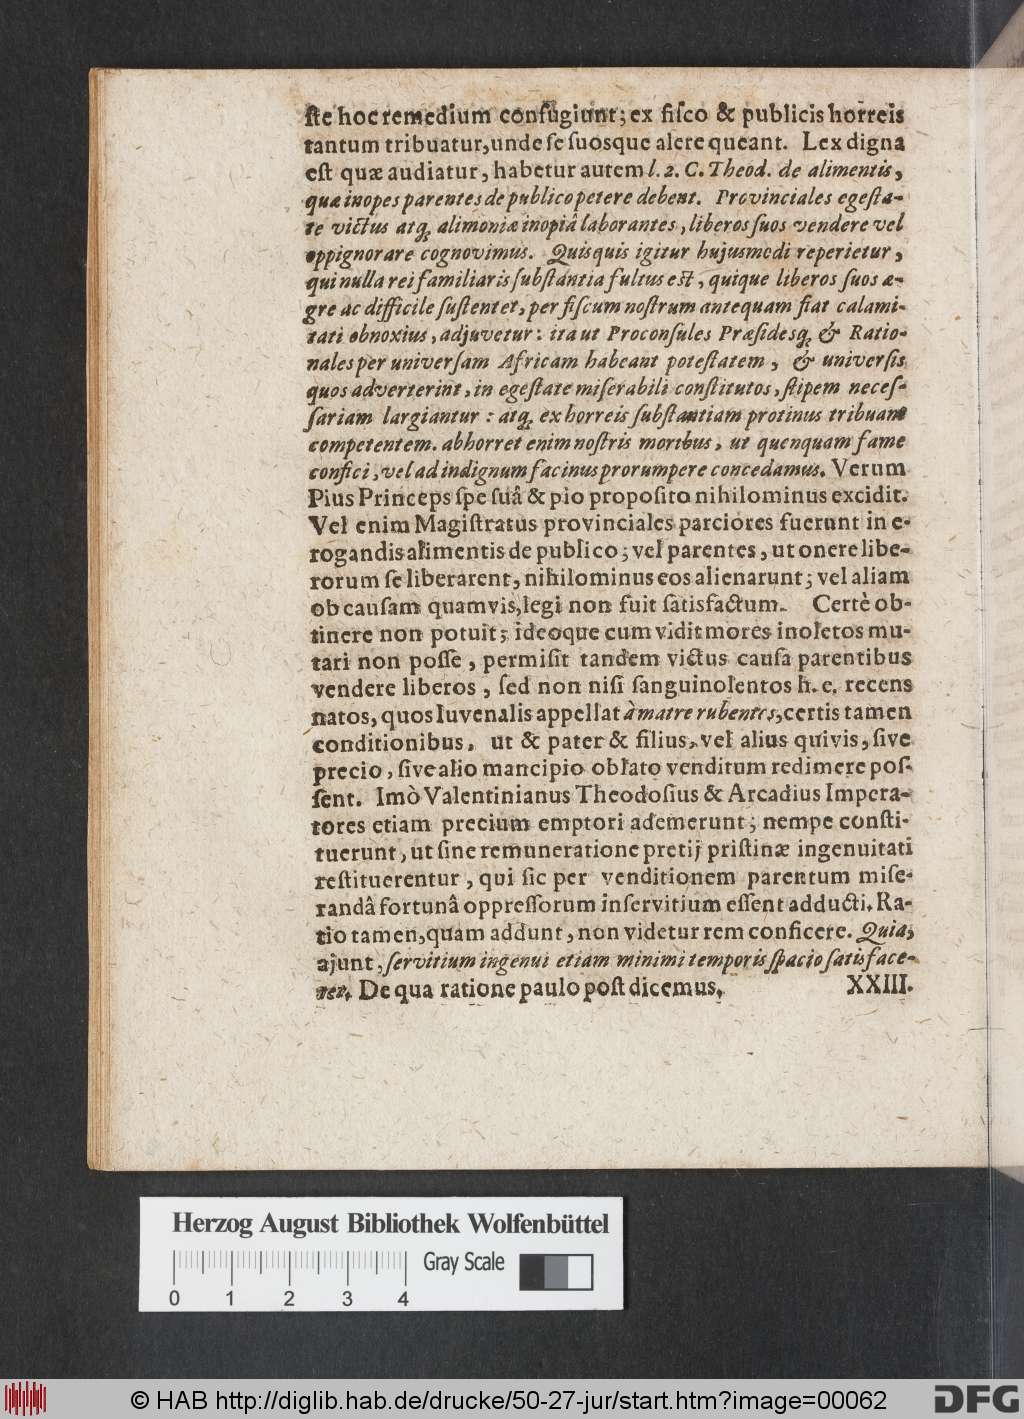 ſte hoc remedium confugiunt; ex fiſco & publicis horreis
tantum tribuatur, unde ſe ſuosque alere queant. Lex digna
eſt quæ audiatur, habetur autem l. 2. C. Theod. de alimentis,
quæ inopes parentes de publico petere debent. Provinciales egeſta-
te victus atq; alimoniæ inopiâ laborantes, liberos ſuos vendere vel
oppignorare cognovimus. Quisquis igitur hujusmodi reperietur,
qui nulla rei familiaris ſubſtantia fultus eſt, quique liberos ſuos æ-
gre ac difficile ſuſtentet, per fiſcum noſtrum antequam fiat calami-
tati obnoxius, adjuvetur: ita ut Proconſules Præſidesq; & Ratio-
nales per univerſam Africam habeant poteſtatem, & univerſis
quos adverterint, in egeſtate miſerabili conſtitutos, ſtipem neceſ-
ſariam largiantur: atq; ex horreis ſubſtantiam protinus tribuant
competentem. abhorret enim noſtris moribus, ut quenquam fame
confici, vel ad indignum facinus prorumpere concedamus. Verum
Pius Princeps ſpe ſuâ & pio propoſito nihilominus excidit.
Vel enim Magiſtratus provinciales parciores fuerunt in e-
rogandis alimentis de publico; vel parentes, ut onere libe-
rorum ſe liberarent, nihilominus eos alienarunt; vel aliam
ob cauſam quamvis, legi non fuit ſatisfactum. Certè ob-
tinere non potuit; ideoque cum vidit mores inoletos mu-
tari non poſſe, permiſit tandem victus cauſa parentibus
vendere liberos, ſed non niſi ſanguinolentos h. e. recens
natos, quos Iuvenalis appellat à matre rubentes, certis tamen
conditionibus, ut & pater & filius, vel alius quivis, ſive
precio, ſive alio mancipio oblato venditum redimere poſ-
ſent. Imò Valentinianus Theodoſius & Arcadius Impera-
tores etiam precium emptori ademerunt; nempe conſti-
tuerunt, ut ſine remuneratione pretij priſtinæ ingenuitati
reſtituerentur, qui ſic per venditionem parentum miſe-
randâ fortunâ oppreſſorum in ſervitium eſſent adducti. Ra-
tio tamen, quam addunt, non videtur rem conficere. Quia,
ajunt, ſervitium ingenui etiam minimi temporis ſpacio ſatisface-
ret. De qua ratione paulo poſt dicemus. XXIII.
Herzog August Bibliothek Wolfenbüttel
Gray Scale
0 1 2 3 4
© HAB http://diglib.hab.de/drucke/50-27-jur/start.htm?image=00062
DFG